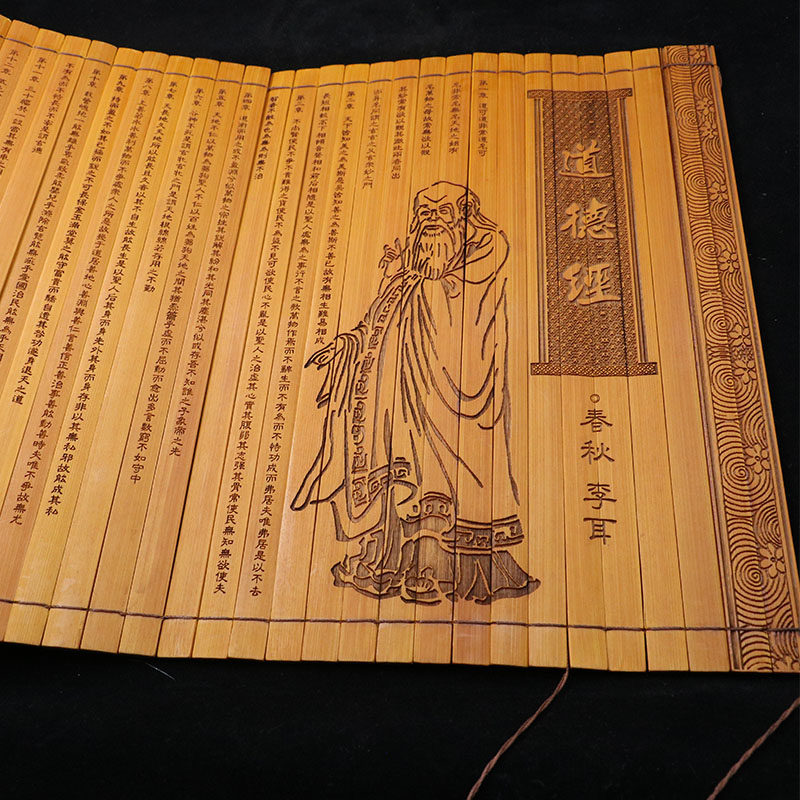 道德經
春秋 李耳
第一章 道可道非常道名可
名非常名無名天地之始有
名萬物之母故常無欲以觀
其妙常有欲以觀其徼此兩者同出
異名同謂之玄之又玄眾妙之門
第二章 天下皆知美之為美斯惡已皆知善之為善斯不善已故有無相生難易相成
長短相較高下相傾音聲相和前后相隨是以聖人處無為之事行不言之教萬物作焉而不辭生而不有為而不恃功成而弗居夫唯弗居是以不去
第三章 不尚賢使民不爭不貴難得之貨使民不為盜不見可欲使民心不亂是以聖人之治虛其心實其腹弱其志強其骨常使民無知無欲使夫
智者不敢為也為無為則無不治
第四章 道沖而用之或不盈淵兮似萬物之宗挫其銳解其紛和其光同其塵湛兮似或存吾不知誰之子象帝之先
第五章 天地不仁以萬物為芻狗聖人不仁以百姓為芻狗天地之間其猶橐籥乎虛而不屈動而愈出多言數窮不如守中
第六章 谷神不死是謂玄牝玄牝之門是謂天地根綿綿若存用之不勤
第七章 天長地久天地所以能長且久者以其不自生故能長生是以聖人后其身而身先外其身而身存非以其無私邪故能成其私
第八章 上善若水水善利萬物而不爭處眾人之所惡故幾于道居善地心善淵與善仁言善信正善治事善能動善時夫唯不爭故無尤
第九章 持而盈之不如其已揣而銳之不可長保金玉滿堂莫之能守富貴而驕自遺其咎功遂身退天之道
第十章 載營魄抱一能無離乎專氣致柔能嬰兒乎滌除玄覽能無疵乎愛國治民能無為乎天
不有為而不恃長而不宰是謂玄德
第十一章 三十輻共一轂當其無有車之
第十二章